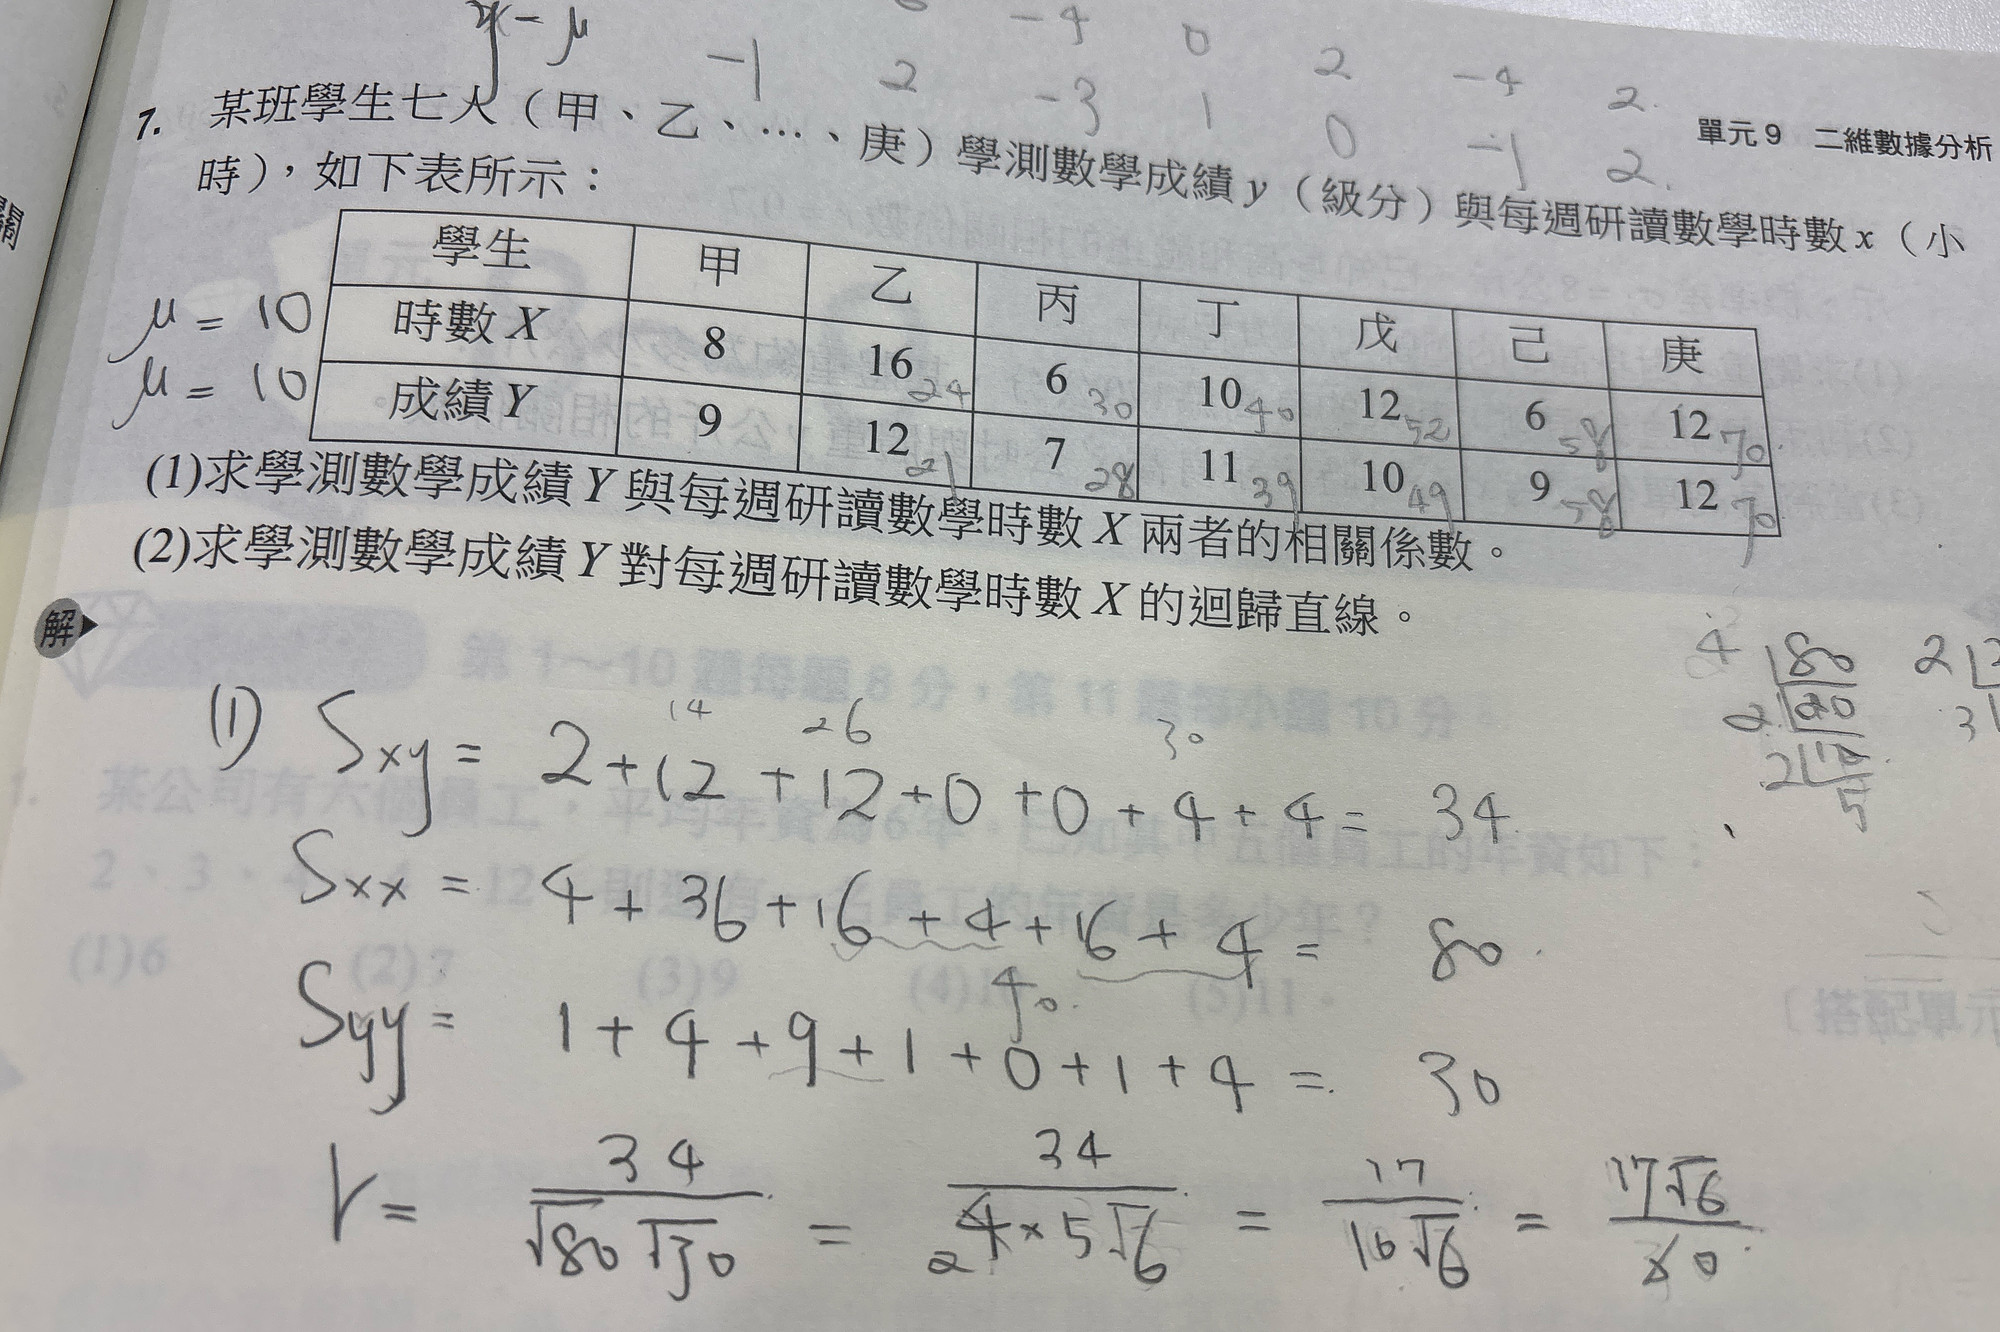 -4 0 2 -4 2
y-μ -1 2 -3 1 0 -1 2
單元9 二維數據分析
7. 某班學生七人（甲、乙、…、庚）學測數學成績 y（級分）與每週研讀數學時數 x（小
時），如下表所示：
學生 甲 乙 丙 丁 戊 己 庚
μ = 10 時數 X 8 16 24 6 30 10 40 12 52 6 58 12 70
μ = 10 成績 Y 9 12 21 7 28 11 39 10 49 9 58 12 70
(1)求學測數學成績 Y 與每週研讀數學時數 X 兩者的相關係數。
(2)求學測數學成績 Y 對每週研讀數學時數 X 的迴歸直線。
解
4 80 2
2 20 3
2 10
5
14 26 30
(1) Sxy = 2+12+12+0+0+4+4 = 34
Sxx = 4+36+16+4+16+4 = 80
40
Syy = 1+4+9+1+0+1+4 = 30
r = 34/√80√30 = 34/4×5√6 = 17/10√6 = 17√6/60
2